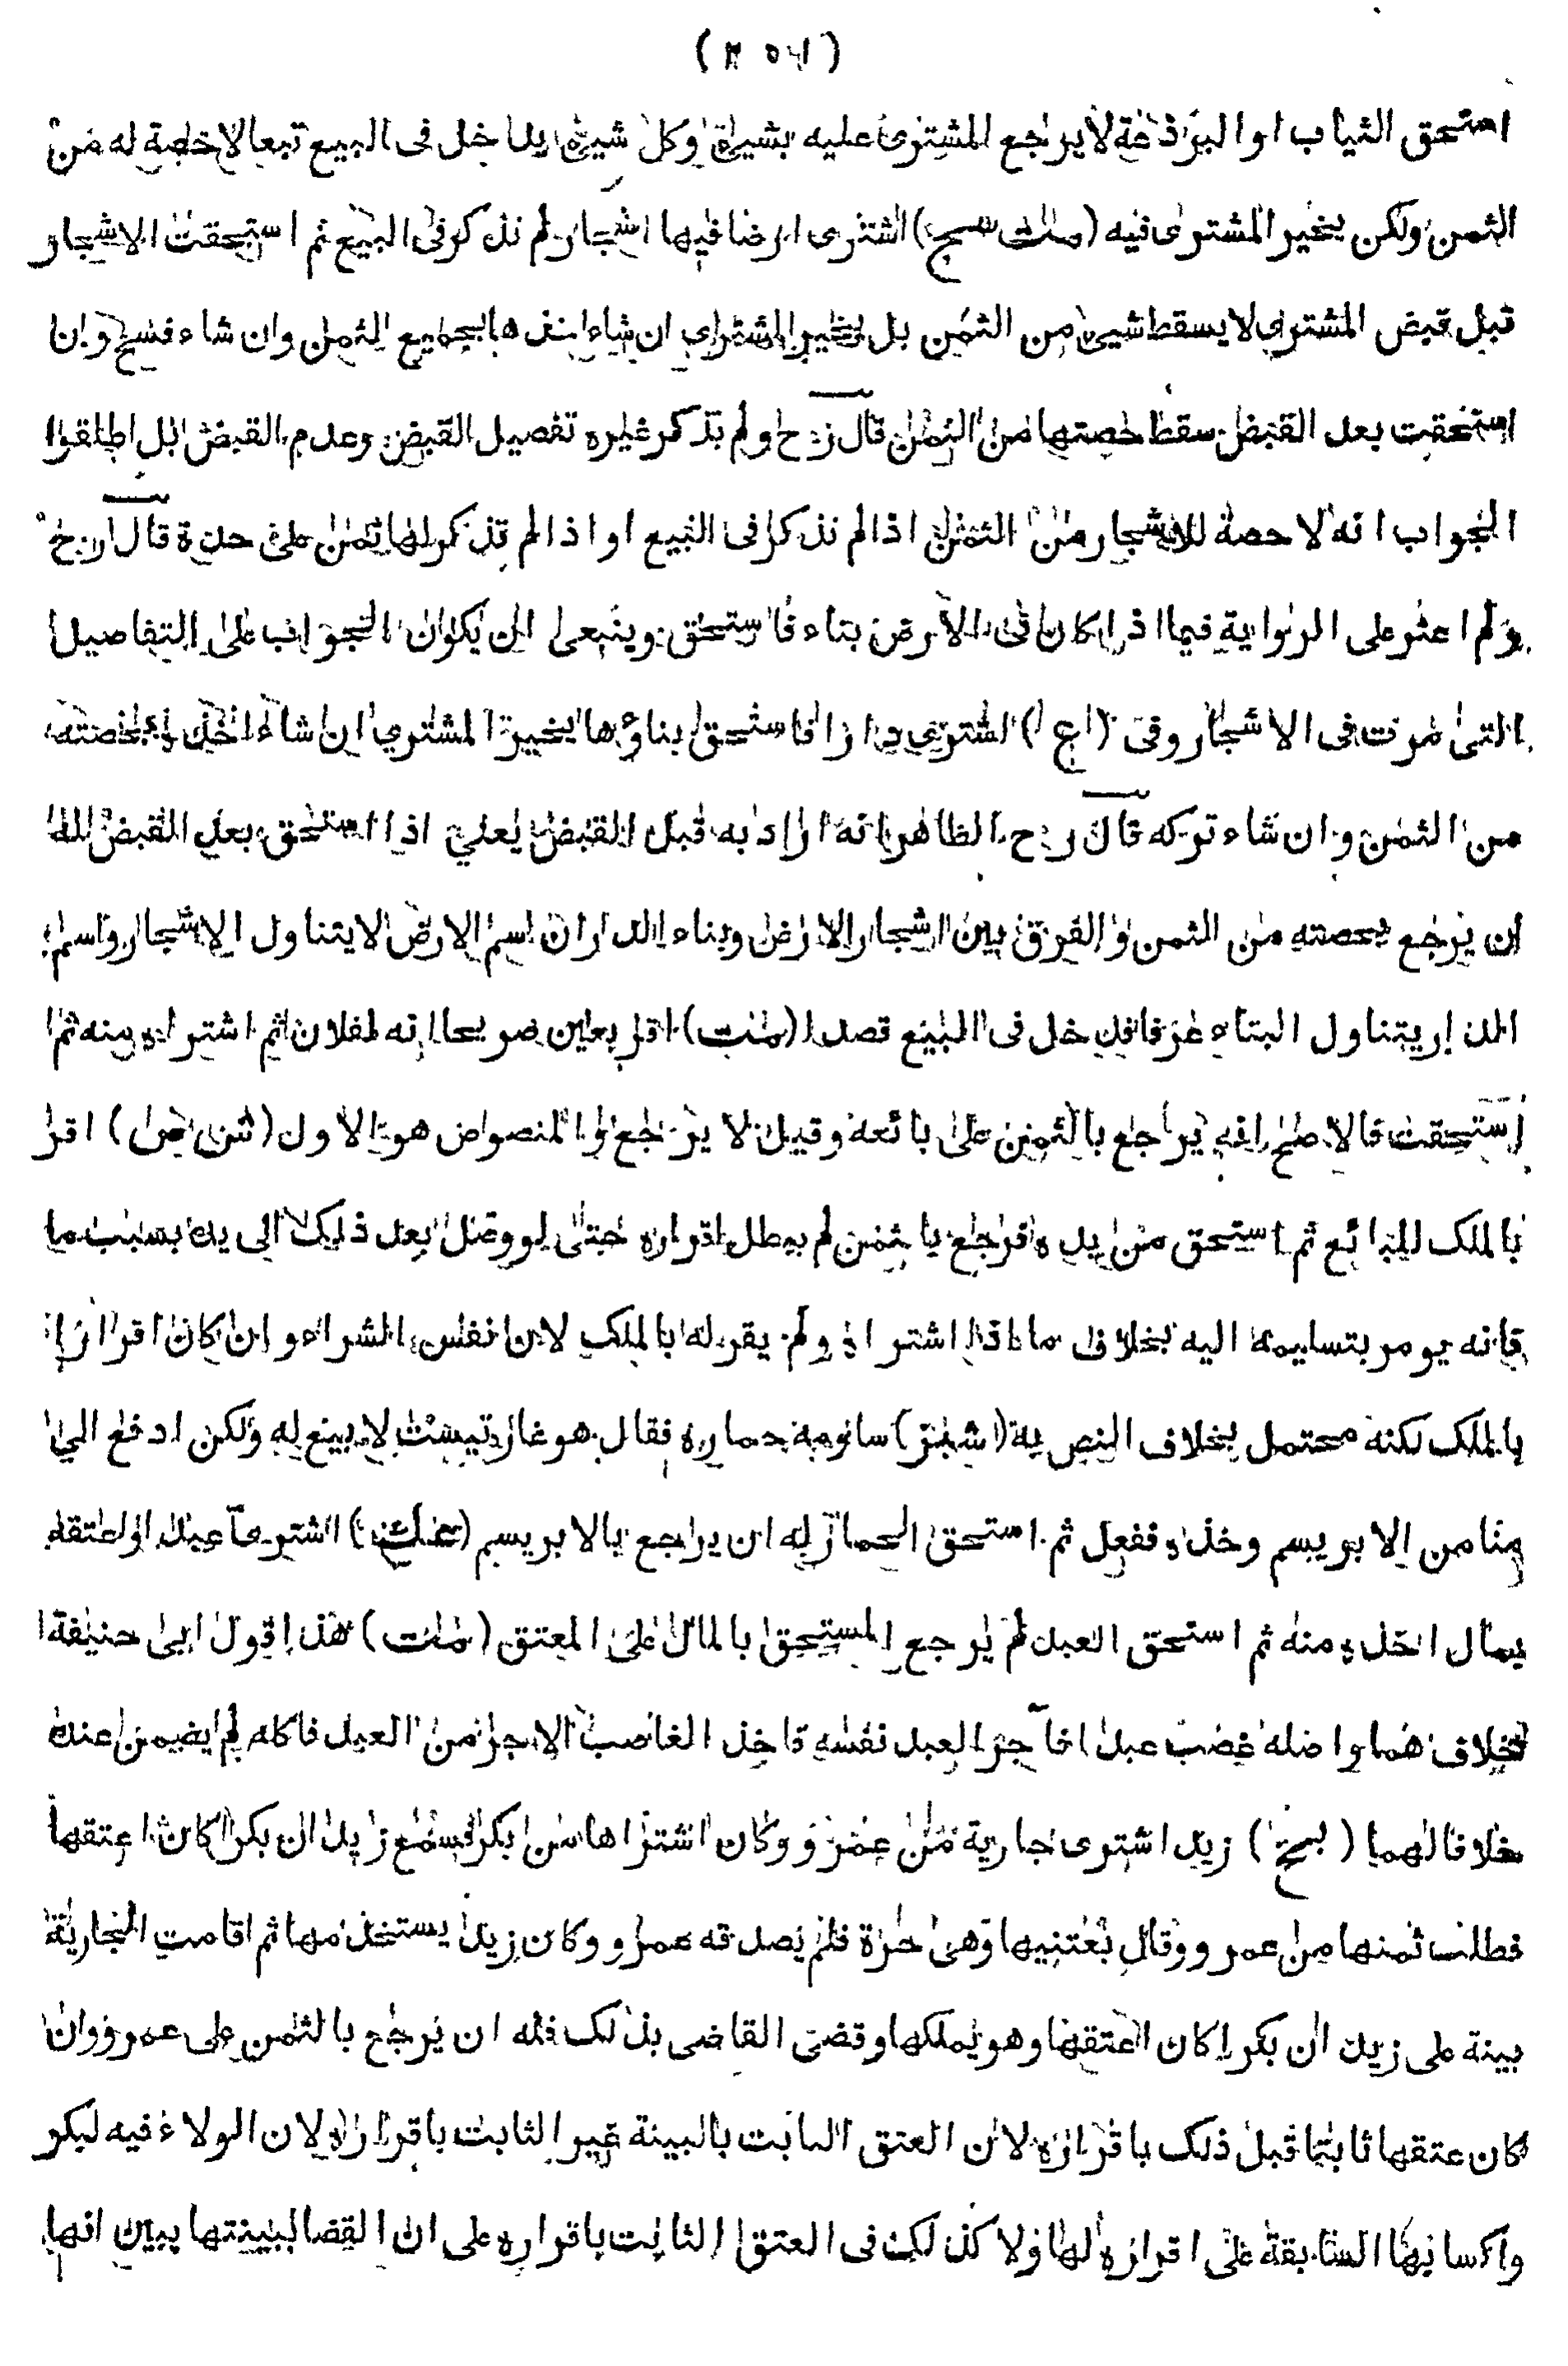 استحق الثياب او البرذعة لا يرجع المشترى عليه بشيئ وكل شيئ يدخل فى البيع تبعا لاحصة له من
الثمن ولكن يخير المشترى فيه اشترى ارضا فيها اشجار لم تذكر فى البيع ثم استحقت الاشجار
قبل قبض المشترى لا يسقط شيئ من الثمن بل يخير المشترى ان شاء اخذها بجميع الثمن وان شاء فسخ وان
استحقت بعد القبض سقط حصتها من الثمن قال رح ولم يذكر غيره تفصيل القبض وعدم القبض بل اطلقوا
الجواب انه لا حصة للاشجار من الثمن اذا لم تذكر فى البيع او اذا لم تذكر لها ثمن على حدة قال رح
ولم اعثر على الرواية فيما اذا كان فى الارض بناء فاستحق وينبغى ان يكون الجواب على التفاصيل
التى مرت فى الاشجار وفى اشترى دارا فاستحق بناؤها يخير المشترى ان شاء اخذ بحصته
من الثمن وان شاء تركه قال رح الظاهر انه اراد به قبل القبض يعنى اذا استحق بعد القبض له
ان يرجع بحصته من الثمن والفرق بين اشجار الارض وبناء الدار ان اسم الارض لا يتناول الاشجار واسم
الدار يتناول البناء عرفا فدخل فى البيع قصدا (مت) اقر بعين صريحا انه لفلان ثم اشتراه منه ثم
استحقت فالاصح انه يرجع بالثمن على بائعه وقيل لا يرجع والمنصوص هو الاول اقر
بالملك للبائع ثم استحق من يده فرجع بالثمن لم يبطل اقراره حتى لو وصل بعد ذلك الى يده بسبب ما
فانه يومر بتسليمه اليه بخلاف ما اذا اشتراه ولم يقر له بالملك لان نفس الشراء وان كان اقرارا
بالملك لكنه محتمل بخلاف النص ساومه حماره فقال هو لا بيع له ولكن ادفع الى
منا من الابريسم وخذه ففعل ثم استحق الحمار له ان يراجع بالابريسم اشترى عبدا واعتقه
بمال اخذه منه ثم استحق العبد لم يرجع المستحق بالمال على المعتق (مت) هذا قول ابى حنيفة
بخلافهما واصله غصب عبدا فآجر العبد نفسه فاخذ الغاصب الاجر من العبد فاكله لم يضمن عنده
خلافا لهما (بمخ) زيد اشترى جارية من عمرو وكان اشتراها من بكر فسمع زيد ان بكرا كان اعتقها
فطلب ثمنها من عمرو وقال بعتنيها وهى حرة فلم يصدقه عمرو وكان زيد يستخدمها ثم اقامت الجارية
بينة على زيد ان بكرا كان اعتقها وهو يملكها وقضى القاضى بذلك فله ان يرجع بالثمن على عمرو وان
كان عتقها ثابتا قبل ذلك باقراره لان العتق الثابت بالبينة غير الثابت باقراره لان الولاء فيه لبكر
واكسابها السابقة على اقراره لها ولا كذلك فى العتق الثابت باقراره على ان القضا ببينتها يبين انها